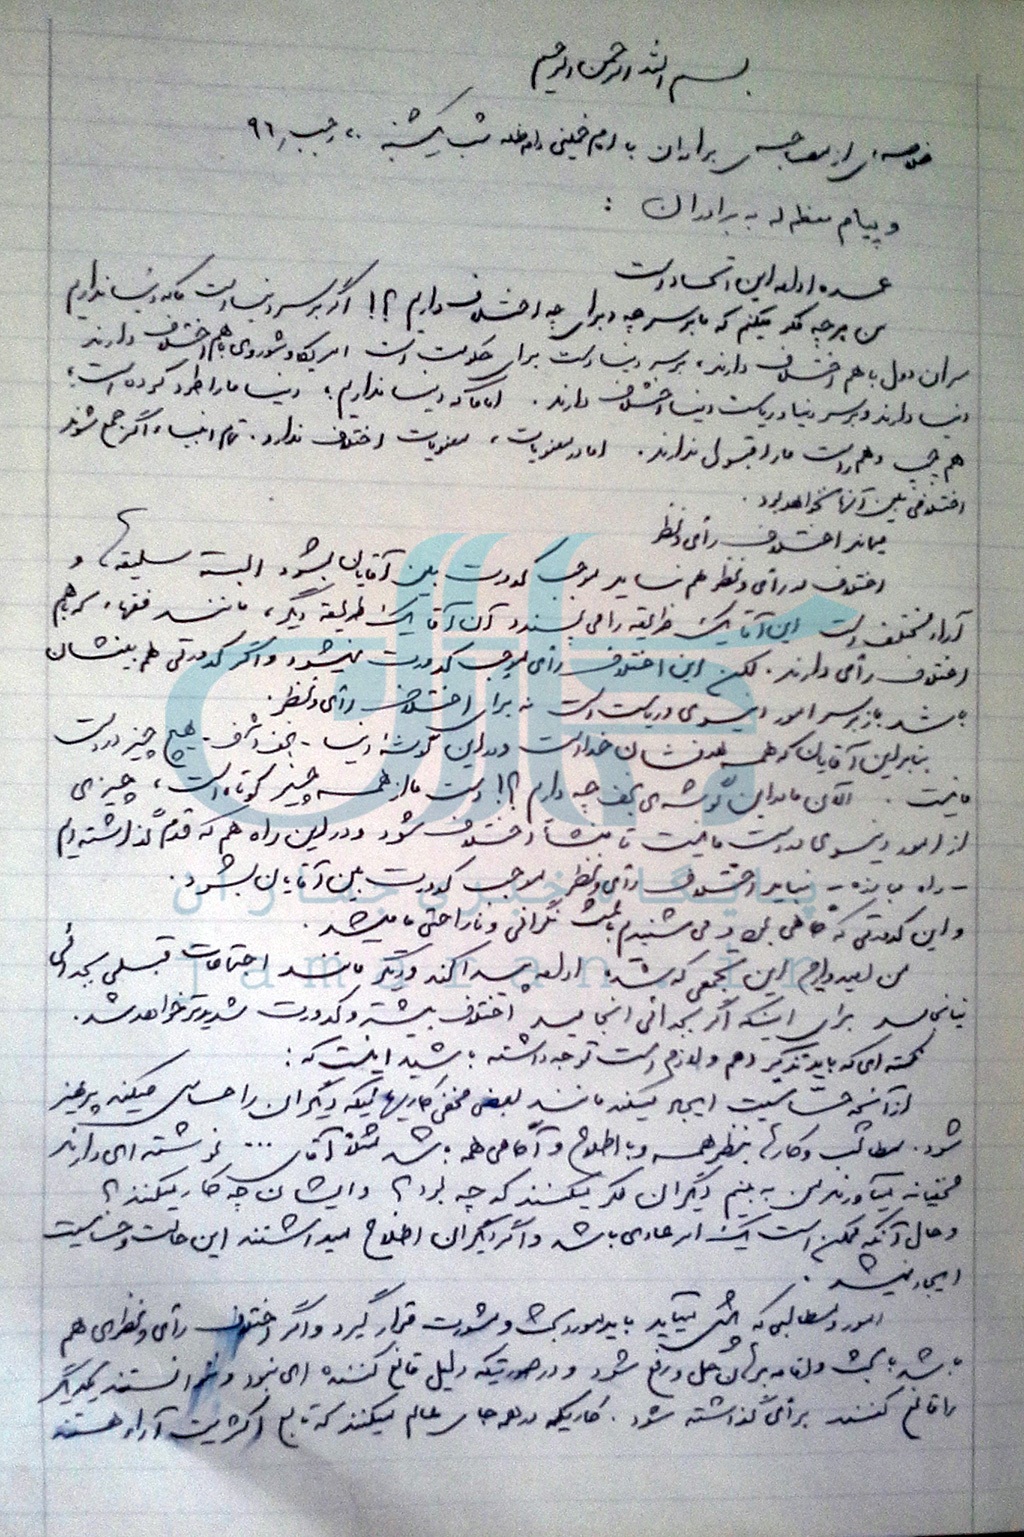 بسم الله الرحمن الرحیم
خلاصه‌ای از مصاحبه‌ی برادران با امام خمینی دام ظله شب یکشنبه ۲۰ رجب ۹۶
و پیام معظم له به برادران :
عمده ادامه این اتحاد است
من هر چه فکر میکنم که ما بر سر چه و برای چه اختلاف داریم ؟! اگر بر سر دنیا است ما که دنیا نداریم
سران دول با هم اختلاف دارند، بر سر دنیا است برای حکومت است امریکا و شوروی با هم اختلاف دارند
دنیا دارند و بر سر دنیا و ریاست دنیا اختلاف دارند . اما ما که دنیا نداریم، دنیا ما را طرد کرده است،
هم چپ و هم راست ما را قبول ندارند . اما در معنویات، معنویات اختلاف ندارد . تمام انبیاء اگر جمع شوند
اختلافی بین آنها نخواهد بود .
میماند اختلاف رأی و نظر
اختلاف در رأی و نظر هم نباید موجب کدورت بین آقایان بشود البته سلیقه‌ها و
آراء مختلف است این آقا یک طریقه را می پسندد آن آقا یک طریقه دیگر، مانند فقهاء که با هم
اختلاف رأی دارند . لکن این اختلاف رأی موجب کدورت نمیشود و اگر کدورتی هم بینشان
باشد باز بر سر امور دنیوی و ریاست است نه برای اختلاف رأی و نظر .
بنابراین آقایان که همه هدفشان خدا است و در این گوشه دنیا - نجف اشرف - هیچ چیز در دست
ما نیست . الآن ما در این گوشه‌ی نجف چه داریم ؟! دست ما از همه چیز کوتاه است، چیزی
از امور دنیوی در دست ما نیست تا منشأ اختلاف شود و در این راه هم که قدم گذاشته‌ایم
- راه مبارزه - نباید اختلاف رأی و نظر موجب کدورت بین آقایان بشود .
و این کدورتی که گاهی بود و می شنیدم باعث نگرانی و ناراحتی ما میشد .
من امیدوارم این تجمعی که شده ادامه پیدا کند و دیگر مانند اجتماعات قبلی بجدائی
نیانجامد برای اینکه اگر بجدائی انجامید اختلاف بیشتر و کدورت شدیدتر خواهد شد .
نکته‌ای که باید تذکر دهم و لازم است توجه داشته باشید اینست که :
از آنچه حساسیت ایجاد میکند مانند بعضی مخفی کاریها که دیگران را حساس میکند پرهیز
شود . مطالب و کارها بنظر همه و با اطلاع و آگاهی همه باشد مثلا آقای ... نوشته‌ای دارند
مخفیانه میآورند من به بینم دیگران فکر میکنند که چه بود ؟ و ایشان چه کار میکنند ؟
و حال آنکه ممکن است یک امر عادی باشد و اگر دیگران اطلاع میداشتند این حالت و حساسیت
ایجاد نمیشد .
امور و مطالبی که پیش میآید باید مورد بحث و مشورت قرار گیرد و اگر اختلاف رأی و نظری هم
باشد با بحث و اقامه برهان حل و رفع شود و در صورتیکه دلیل قانع کننده ای نبود و نتوانستند یکدیگر
را قانع کنند برأی گذاشته شود . کاریکه در همه جای عالم میکنند که تابع اکثریت آراء هستند
پایگاه خبری جماران
jamaran.ir